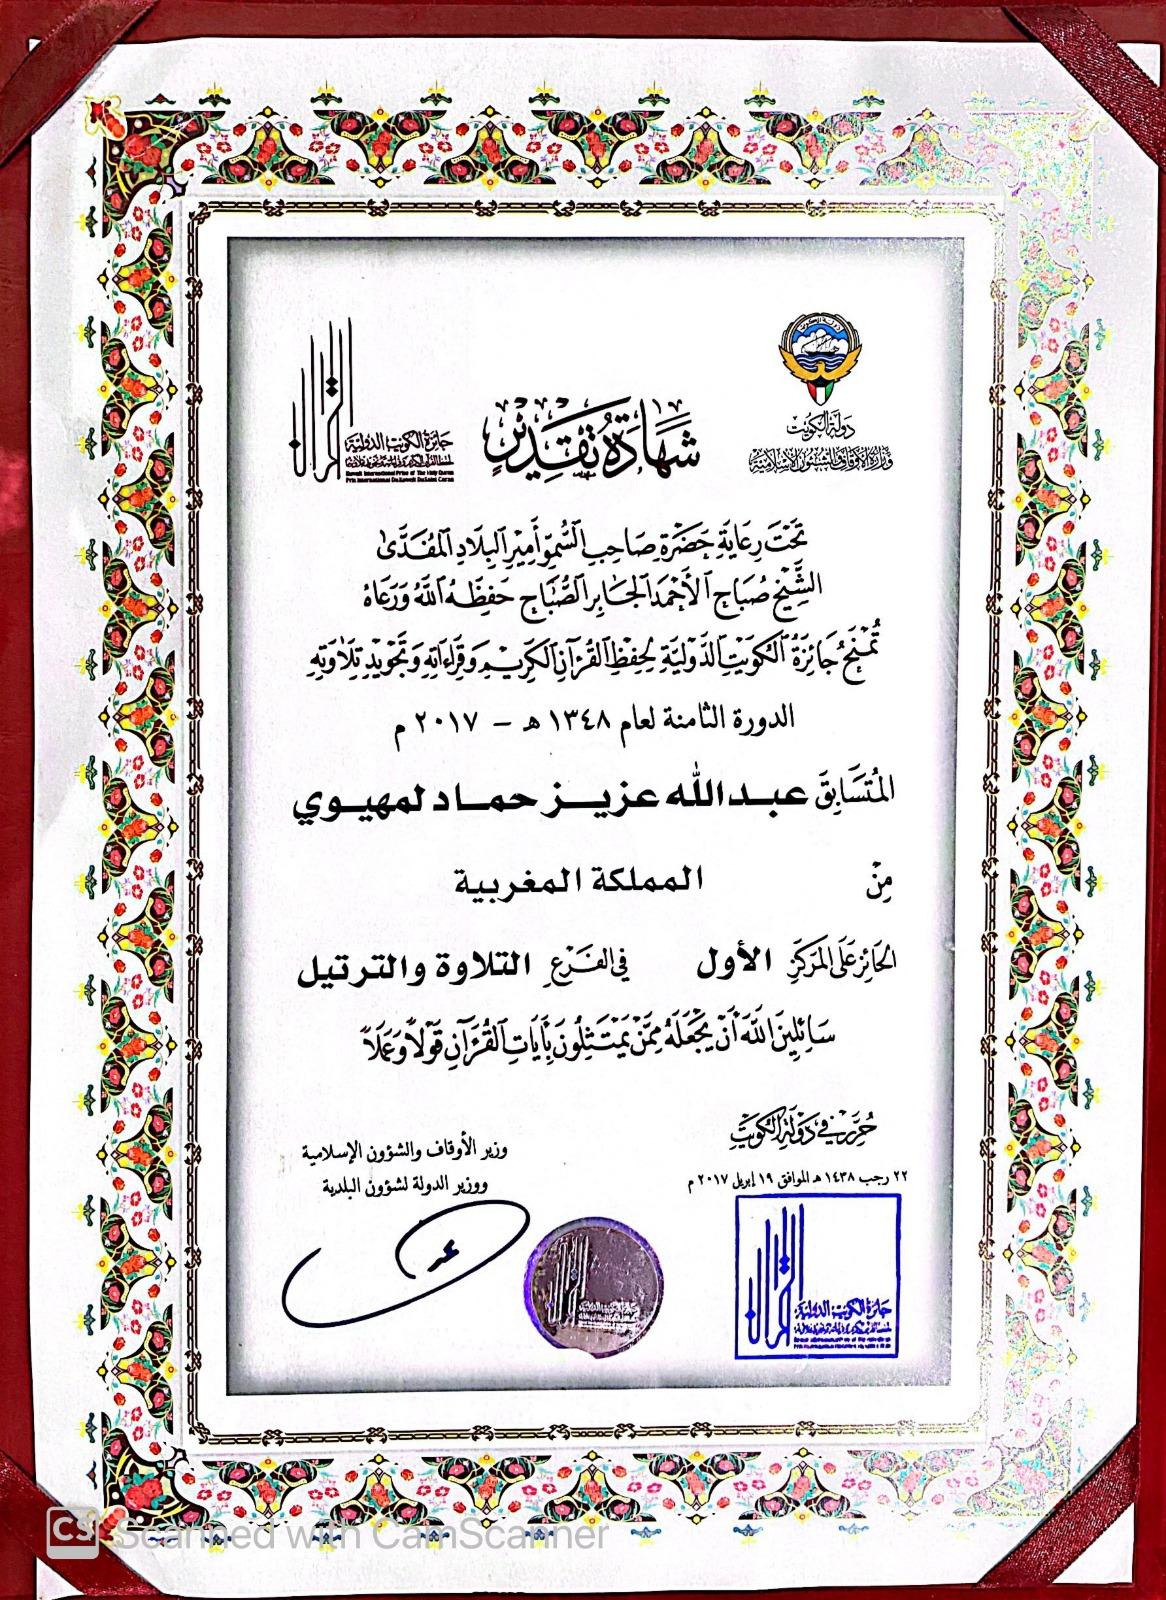 دولة الكويت
وزارة الأوقاف والشئون الإسلامية
شهادة تقدير
جائزة الكويت الدولية
لحفظ القرآن الكريم وقراءاته وتجويد تلاوته
Kuwait International Prize of The Holy Quran
Prix International Du Koweit Du Saint Coran
تَحْتَ رِعَايَةِ حَضْرَةِ صَاحِبِ السُّمُوِّ أَمِيرِ البِلَادِ المُفَدَّىٰ
الشَّيْخ صُبَاح الأَحْمَد الجَابِر الصُّبَاح حَفِظَهُ اللَّهُ وَرَعَاهُ
تُمْنَحُ جَائِزَةُ الكُوَيْتِ الدَّوْلِيَّةِ لِحِفْظِ القُرْآنِ الكَرِيمِ وَقِرَاءَاتِهِ وَتَجْوِيدِ تِلَاوَتِهِ
الدورة الثامنة لعام ١٣٤٨ هـ - ٢٠١٧ م
المُتَسَابِقَ عبدالله عزيز حماد لمهيوي
مِنْ المملكة المغربية
الحَائِزِ عَلَى المَرْكَزِ الأول في الفَرْعِ التلاوة والترتيل
سَائِلِينَ اللَّهَ أَنْ يَجْعَلَهُ مِمَّنْ يَمْتَثِلُونَ بِآيَاتِ القُرْآنِ قَوْلاً وَعَمَلاً
حُرِّرَ في دَوْلَةِ الكُوَيْتِ
٢٢ رجب ١٤٣٨ هـ الموافق ١٩ إبريل ٢٠١٧ م
وزير الأوقاف والشؤون الإسلامية
ووزير الدولة لشؤون البلدية
جائزة الكويت الدولية
CS Scanned with CamScanner